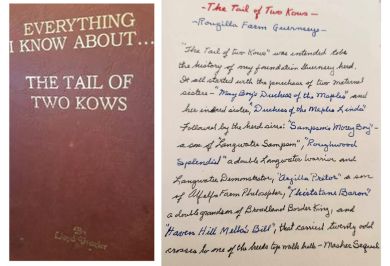 EVERYTHING
I KNOW ABOUT...
THE TAIL OF
TWO KOWS
By
Lloyd
- The Tail of Two Kows -
- Rouzilla Farm Guernseys -
"The Tail of Two Kows" was intended to be
the history of my foundation Guernsey herd.
It all started with the purchase of two maternal
sisters - "May Boy's Duchess of the Maples" and
her inbred sister, "Duchess of the Maples Linda"
Followed by the herd sires: "Sampson's Morey Boy" -
a son of Langwater Sampson, "Roughwood
Splendid" a double Langwater Warrior and
Langwater Demonstrator, "Argilla Pretor" a son
of Alfalfa Farm Philosopher, "Thiststane Baron"
a double grandson of Broadland Border King, and
"Haven Hill Melba's Bill", that carried twenty odd
crosses to one of the breeds top walk bulls - Masher Sequel